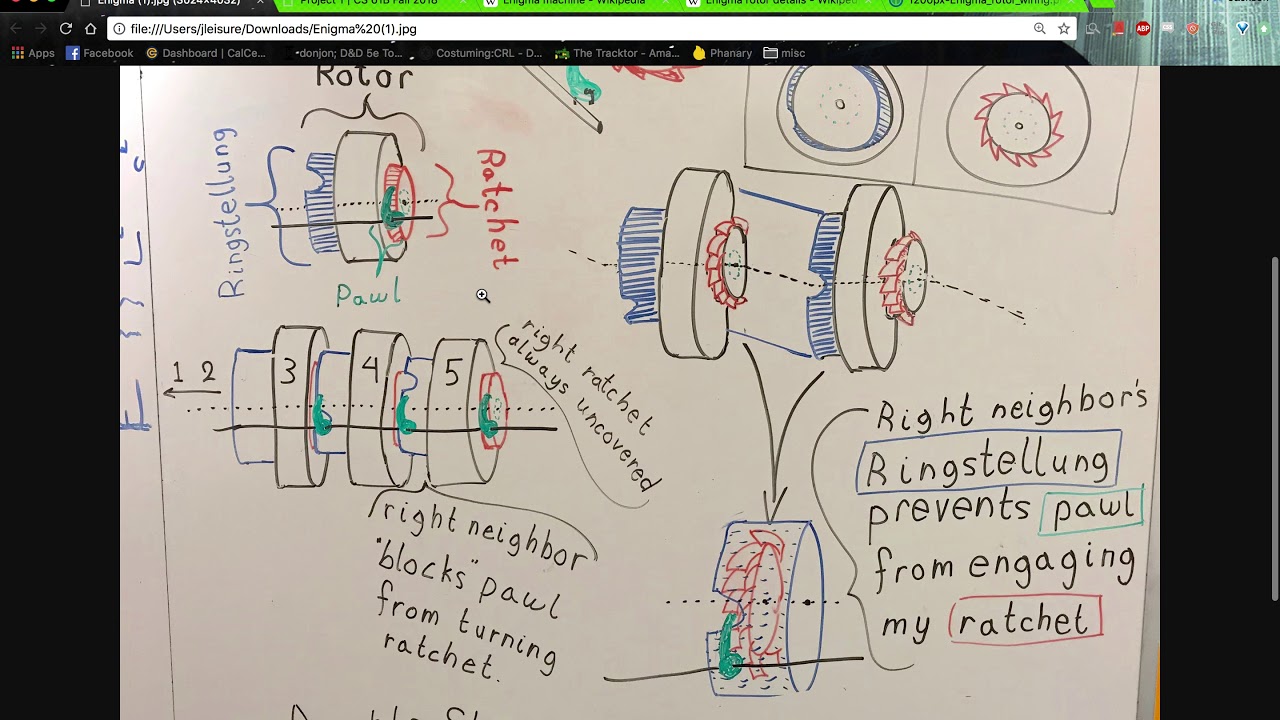 Enigma (1).jpg (3024×4032)
Project 1 | CS 61B Fall 2018
Enigma machine - Wikipedia
Enigma rotor details - Wikiped
1200px-Enigma_rotor_wiring.p
file:///Users/jleisure/Downloads/Enigma%20(1).jpg
Apps
Facebook
Dashboard | CalCe...
donjon; D&D 5e To...
Costuming:CRL - D...
The Tracktor - Ama...
Phanary
misc
ABP
Rotor
Ringstellung
Ratchet
Pawl
1 2 3 4 5
right ratchet
always uncovered
right neighbor
"blocks" pawl
from turning
ratchet.
Right neighbor's
Ringstellung
prevents pawl
from engaging
my ratchet